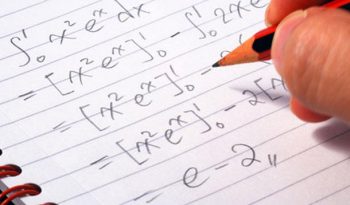 ∫₀¹ x² eˣ dx
= [x² eˣ]₀¹ - ∫₀¹ 2x e
= [x² eˣ]₀¹ -
= [x² eˣ]₀¹ - 2[x
= e - 2 〃